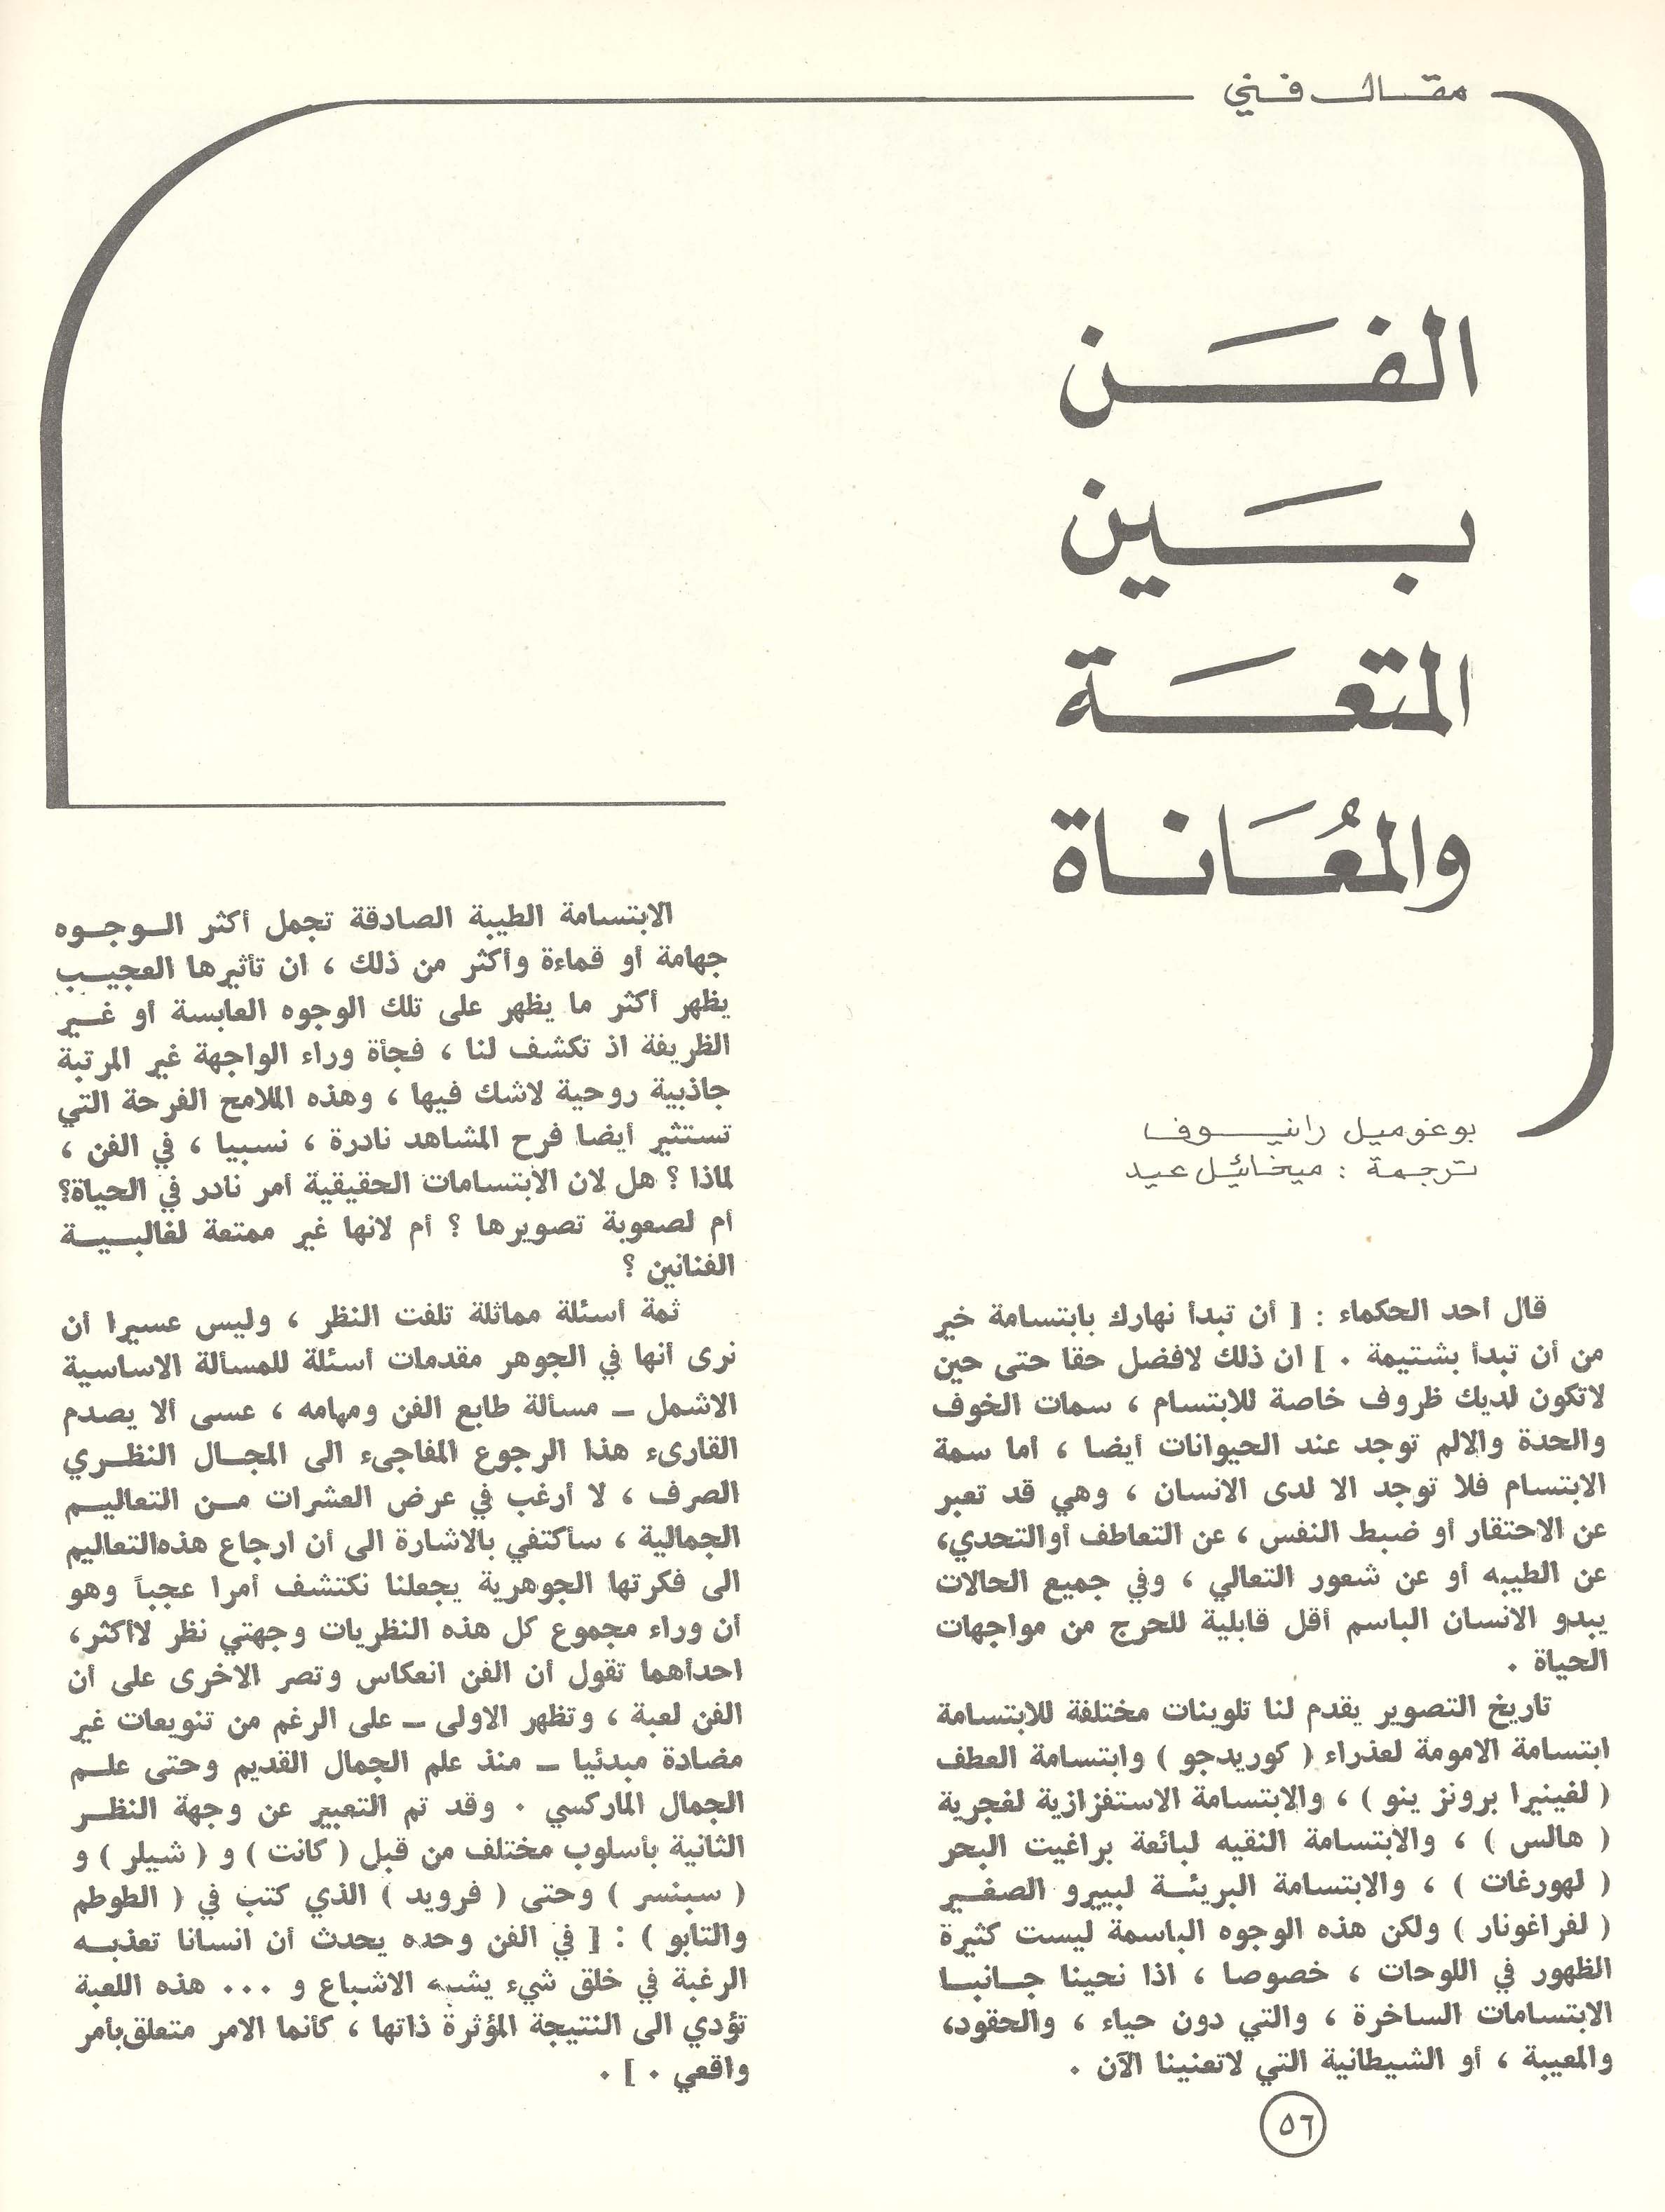 مقال فني
الفن
بين
المتعة
والمعاناة
بوغوميل راينوف
ترجمة : ميخائيل عيد
قال أحد الحكماء : [ أن تبدأ نهارك بابتسامة خير
من أن تبدأ بشتيمة . ] ان ذلك لافضل حقا حتى حين
لاتكون لديك ظروف خاصة للابتسام ، سمات الخوف
والحدة والالم توجد عند الحيوانات أيضا ، أما سمة
الابتسام فلا توجد الا لدى الانسان ، وهي قد تعبر
عن الاحتقار أو ضبط النفس ، عن التعاطف أوالتحدي،
عن الطيبه أو عن شعور التعالي ، وفي جميع الحالات
يبدو الانسان الباسم أقل قابلية للحرج من مواجهات
الحياة .
تاريخ التصوير يقدم لنا تلوينات مختلفة للابتسامة
ابتسامة الامومة لعذراء ( كوريدجو ) وابتسامة العطف
( لفينيرا برونز ينو ) ، والابتسامة الاستفزازية لغجرية
( هالس ) ، والابتسامة النقيه لبائعة براغيت البحر
( لهورغات ) ، والابتسامة البريئة لبييرو الصغير
( لفراغونار ) ولكن هذه الوجوه الباسمة ليست كثيرة
الظهور في اللوحات ، خصوصا ، اذا نحينا جانبا
الابتسامات الساخرة ، والتي دون حياء ، والحقود،
والمعيبة ، أو الشيطانية التي لاتعنينا الآن .
الابتسامة الطيبة الصادقة تجمل أكثر الوجوه
جهامة أو قماءة وأكثر من ذلك ، ان تأثيرها العجيب
يظهر أكثر ما يظهر على تلك الوجوه العابسة أو غير
الظريفة اذ تكشف لنا ، فجأة وراء الواجهة غير المرتبة
جاذبية روحية لاشك فيها ، وهذه الملامح الفرحة التي
تستثير أيضا فرح المشاهد نادرة ، نسبيا ، في الفن ،
لماذا ؟ هل لان الابتسامات الحقيقية أمر نادر في الحياة؟
أم لصعوبة تصويرها ؟ أم لانها غير ممتعة لغالبية
الفنانين ؟
ثمة أسئلة مماثلة تلفت النظر ، وليس عسيرا أن
نرى أنها في الجوهر مقدمات أسئلة للمسألة الاساسية
الاشمل ــ مسألة طابع الفن ومهامه ، عسى ألا يصدم
القارىء هذا الرجوع المفاجىء الى المجال النظري
الصرف ، لا أرغب في عرض العشرات من التعاليم
الجمالية ، سأكتفي بالاشارة الى أن ارجاع هذه‌التعاليم
الى فكرتها الجوهرية يجعلنا نكتشف أمرا عجباً وهو
أن وراء مجموع كل هذه النظريات وجهتي نظر لاأكثر،
احدأهما تقول أن الفن انعكاس وتصر الاخرى على أن
الفن لعبة ، وتظهر الاولى ــ على الرغم من تنويعات غير
مضادة مبدئيا ــ منذ علم الجمال القديم وحتى علم
الجمال الماركسي . وقد تم التعبير عن وجهة النظر
الثانية بأسلوب مختلف من قبل ( كانت ) و ( شيلر ) و
( سبنسر ) وحتى ( فرويد ) الذي كتب في ( الطوطم
والتابو ) : [ في الفن وحده يحدث أن انسانا تعذبه
الرغبة في خلق شيء يشبه الاشباع و ... هذه اللعبة
تؤدي الى النتيجة المؤثرة ذاتها ، كأنما الامر متعلق‌بأمر
واقعي . ] .
٥٦